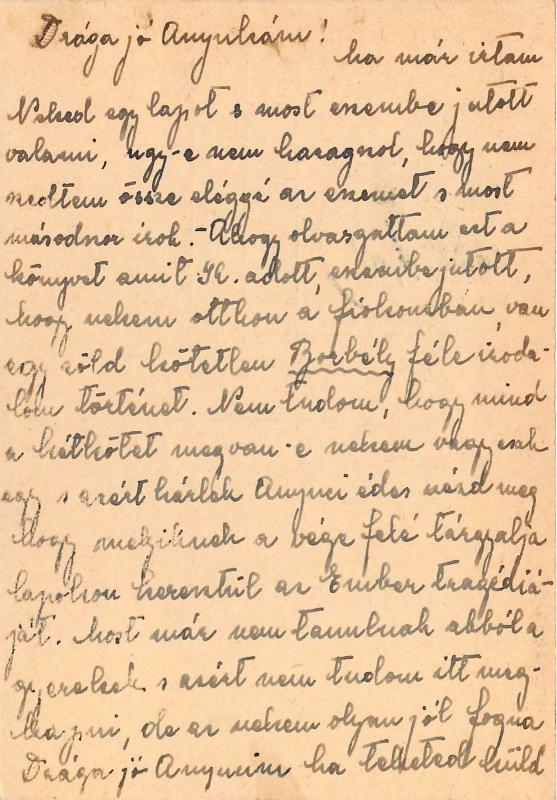 Drága jó Anyukám!
ha már irtam
Neked egy lapot s most eszembe jutott
valami, ugy-e nem haragszol, hogy nem
szedtem össze eléggé az eszemet s most
másodszor irok. - Ahogy olvasgattam ezt a
könyvet amit K. adott, eszembe jutott,
hogy nekem otthon a fiókomban van
egy zöld kötetlen Borbély féle iroda-
lom történet. Nem tudom, hogy mind
a két kötet megvan-e nekem vagy csak
egy s azért kérlek Anyuci édes nézd meg
hogy melyiknek a vége felé tárgyalja
lapokon keresztül az Ember tragédiá-
ját. Most már nem tanulnak abból a
gyerekek s azért nem tudom itt meg-
kapni, de az nekem olyan jól fogna
Drága jó Anyucim ha teheted küld